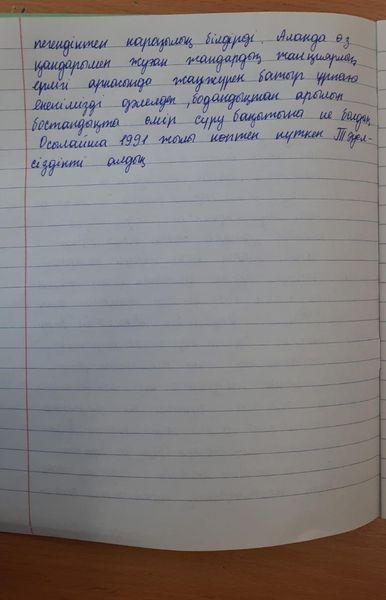 негендіктен наразылық білдерді. Алаңда өз
қандарымен жуған жандардың жанқиярлық
ерлігі арқасында жаужүрек батыр ұрпағы
екенімізді дәлелдеп, бодандықтан арылып
бостандықта өмір сүру бақытына ие болдық
Осылайша 1991 жылы көптен күткен Тәуел-
сіздікті алдық